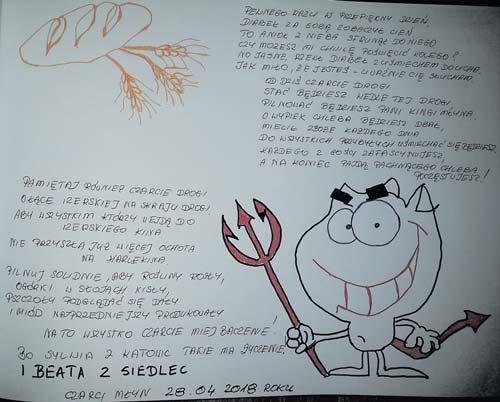 PEWNEGO RAZU W PRZEPIĘKNY DZIEŃ,
DIABEŁ ZA SOBĄ ZOBACZYŁ CIEŃ
TO ANIOŁ Z NIEBA SFRUNĄŁ DO NIEGO
CZY MOŻESZ MI CHWILĘ POŚWIĘCIĆ KOLEGO?
NO JASNE, RZEKŁ DIABEŁ Z UŚMIECHEM SŁUCHA
JAK MIŁO, ŻE JESTEŚ - UWAŻNIE CIĘ SŁUCHAM.
OD DZIŚ CZARCIE DROGI
STAĆ BĘDZIESZ WEDLE TEJ DROGI
PILNOWAĆ BĘDZIESZ PANI KINGI MŁYNA
O WYPIEK CHLEBA BĘDZIESZ DBAŁ,
MIELIŁ ZBOŻE KAŻDEGO DNIA
DO WSZYSTKICH PRZYBYŁYCH UŚMIECHAĆ SIĘ BĘDZIESZ
KAŻDEGO Z GOŚCI ZAFASCYNUJESZ,
A NA KONIEC PAJDĄ PACHNĄCEGO CHLEBA
POCZĘSTUJESZ!
PAMIĘTAJ RÓWNIEŻ CZARCIE DROGI
OŁĄCE IZERSKIEJ NA SKRAJU DROGI
ABY WSZYSTKIM KTÓRZY WEJDĄ DO
IZERSKIEGO KINA
NIE PRZYSZŁA JUŻ WIĘCEJ OCHOTA
NA HARLEKINA
PILNUJ SOLIDNIE, ABY ROŚLINY ROSŁY,
OGÓRKI W SŁOJACH KISŁY,
PSZCZOŁY PODGLĄDAĆ SIĘ DAŁY
I MIÓD NAJPRZEDNIEJSZY PRODUKOWAŁY
NA TO WSZYSTKO CZARCIE MIEJ BACZENIE!
BO SYLWIA Z KATOWIC TAKIE MA ŻYCZENIE,
I BEATA Z SIEDLEC
CZARCI MŁYN 28.04 2018 ROKU